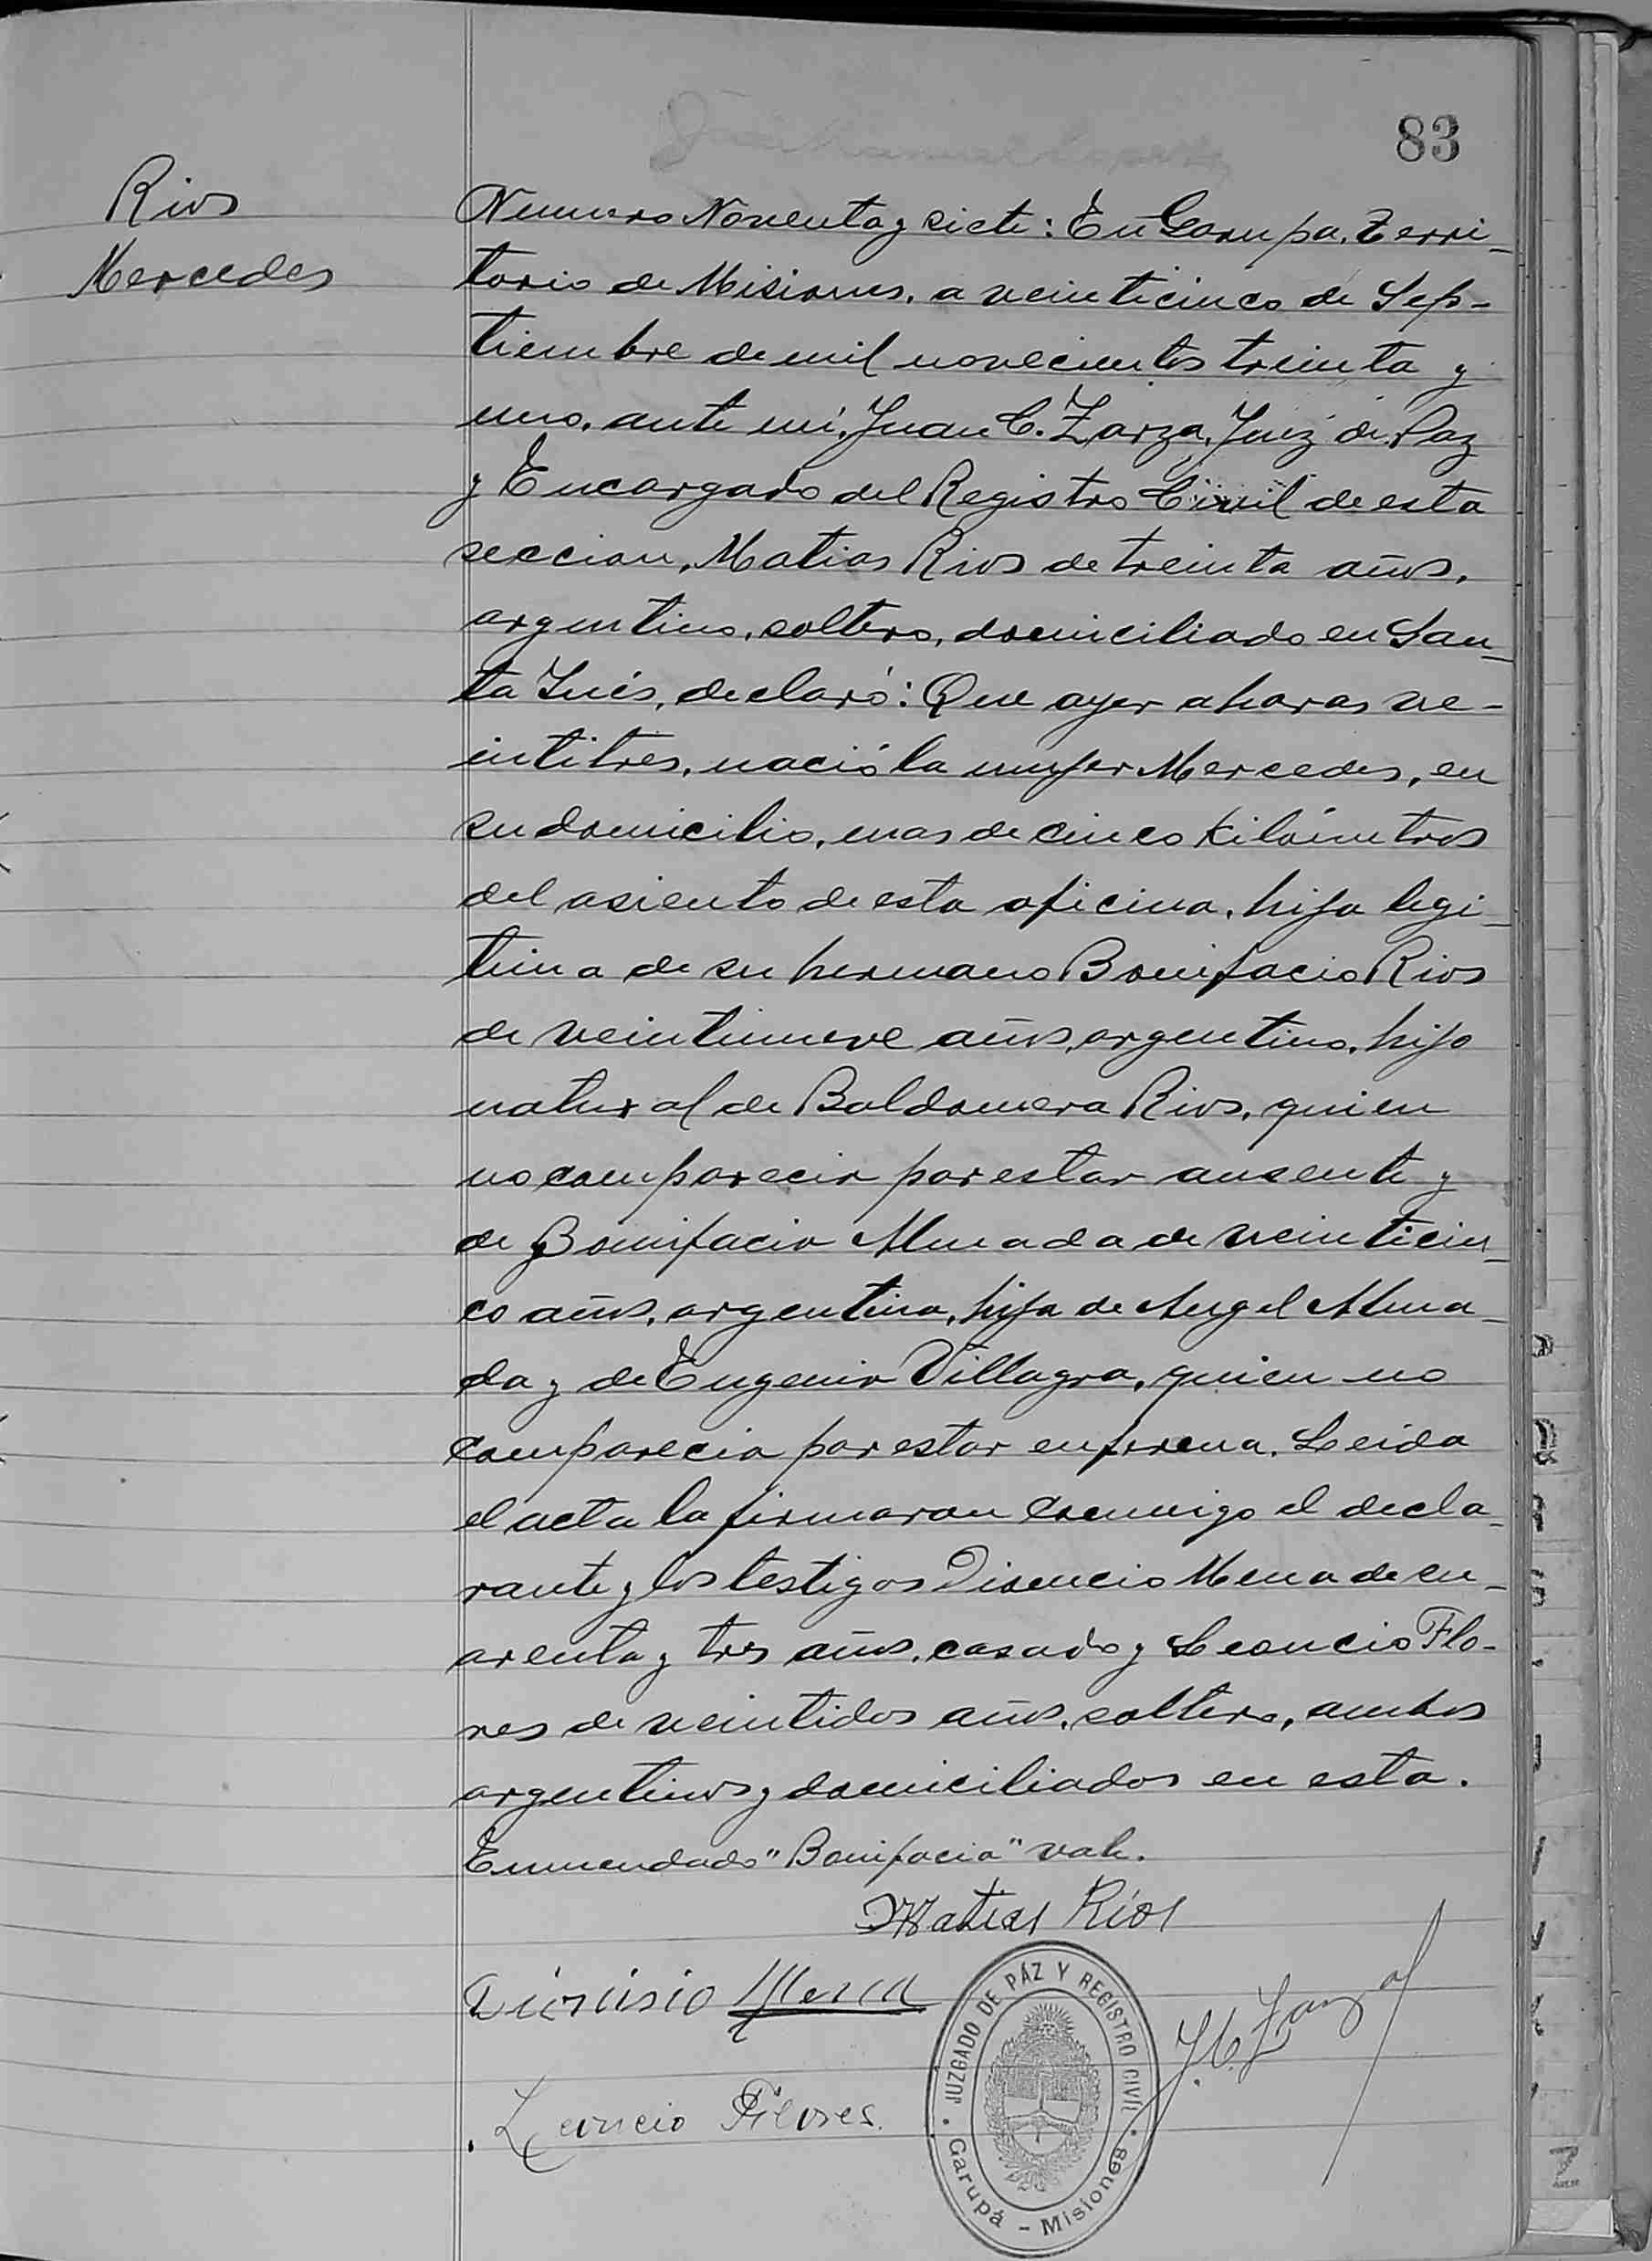 83
Rios
Mercedes
Numero Noventa y siete: En Garupa, Terri-
torio de Misiones, a veinticinco de Sep-
tiembre de mil novecientos treinta y
uno, ante mí, Juan C. Zarza, Juez de Paz
y Encargado del Registro Civil de esta
seccion, Matias Rios de treinta años,
argentino, soltero, domiciliado en San-
ta Inés, declaró: Que ayer a horas ve-
intitres, nació la mujer Mercedes, en
su domicilio, mas de cinco kilómetros
del asiento de esta oficina, hija legi-
tima de su hermano Bonifacio Rios
de veintinueve años, argentino, hijo
natural de Baldomera Rios, quien
no comparecio por estar ausente y
de Bonifacia Almada de veinticin-
co años, argentina, hija de Angel Alma-
da y de Eugenia Villagra, quien no
comparecio por estar enferma. Leida
el acta la firmaron conmigo el decla-
rante y los testigos Dionicio Mena de cu-
arenta y tres años, casado y Leoncio Flo-
res de veintidos años, soltero, ambos
argentinos y domiciliados en esta.
Enmendado "Bonifacia" vale.
Matias Ríos
Dionisio Mena
J. C. Zarza
Leoncio Flores.
JUZGADO DE PÁZ Y REGISTRO CIVIL
Garupá - Misiones